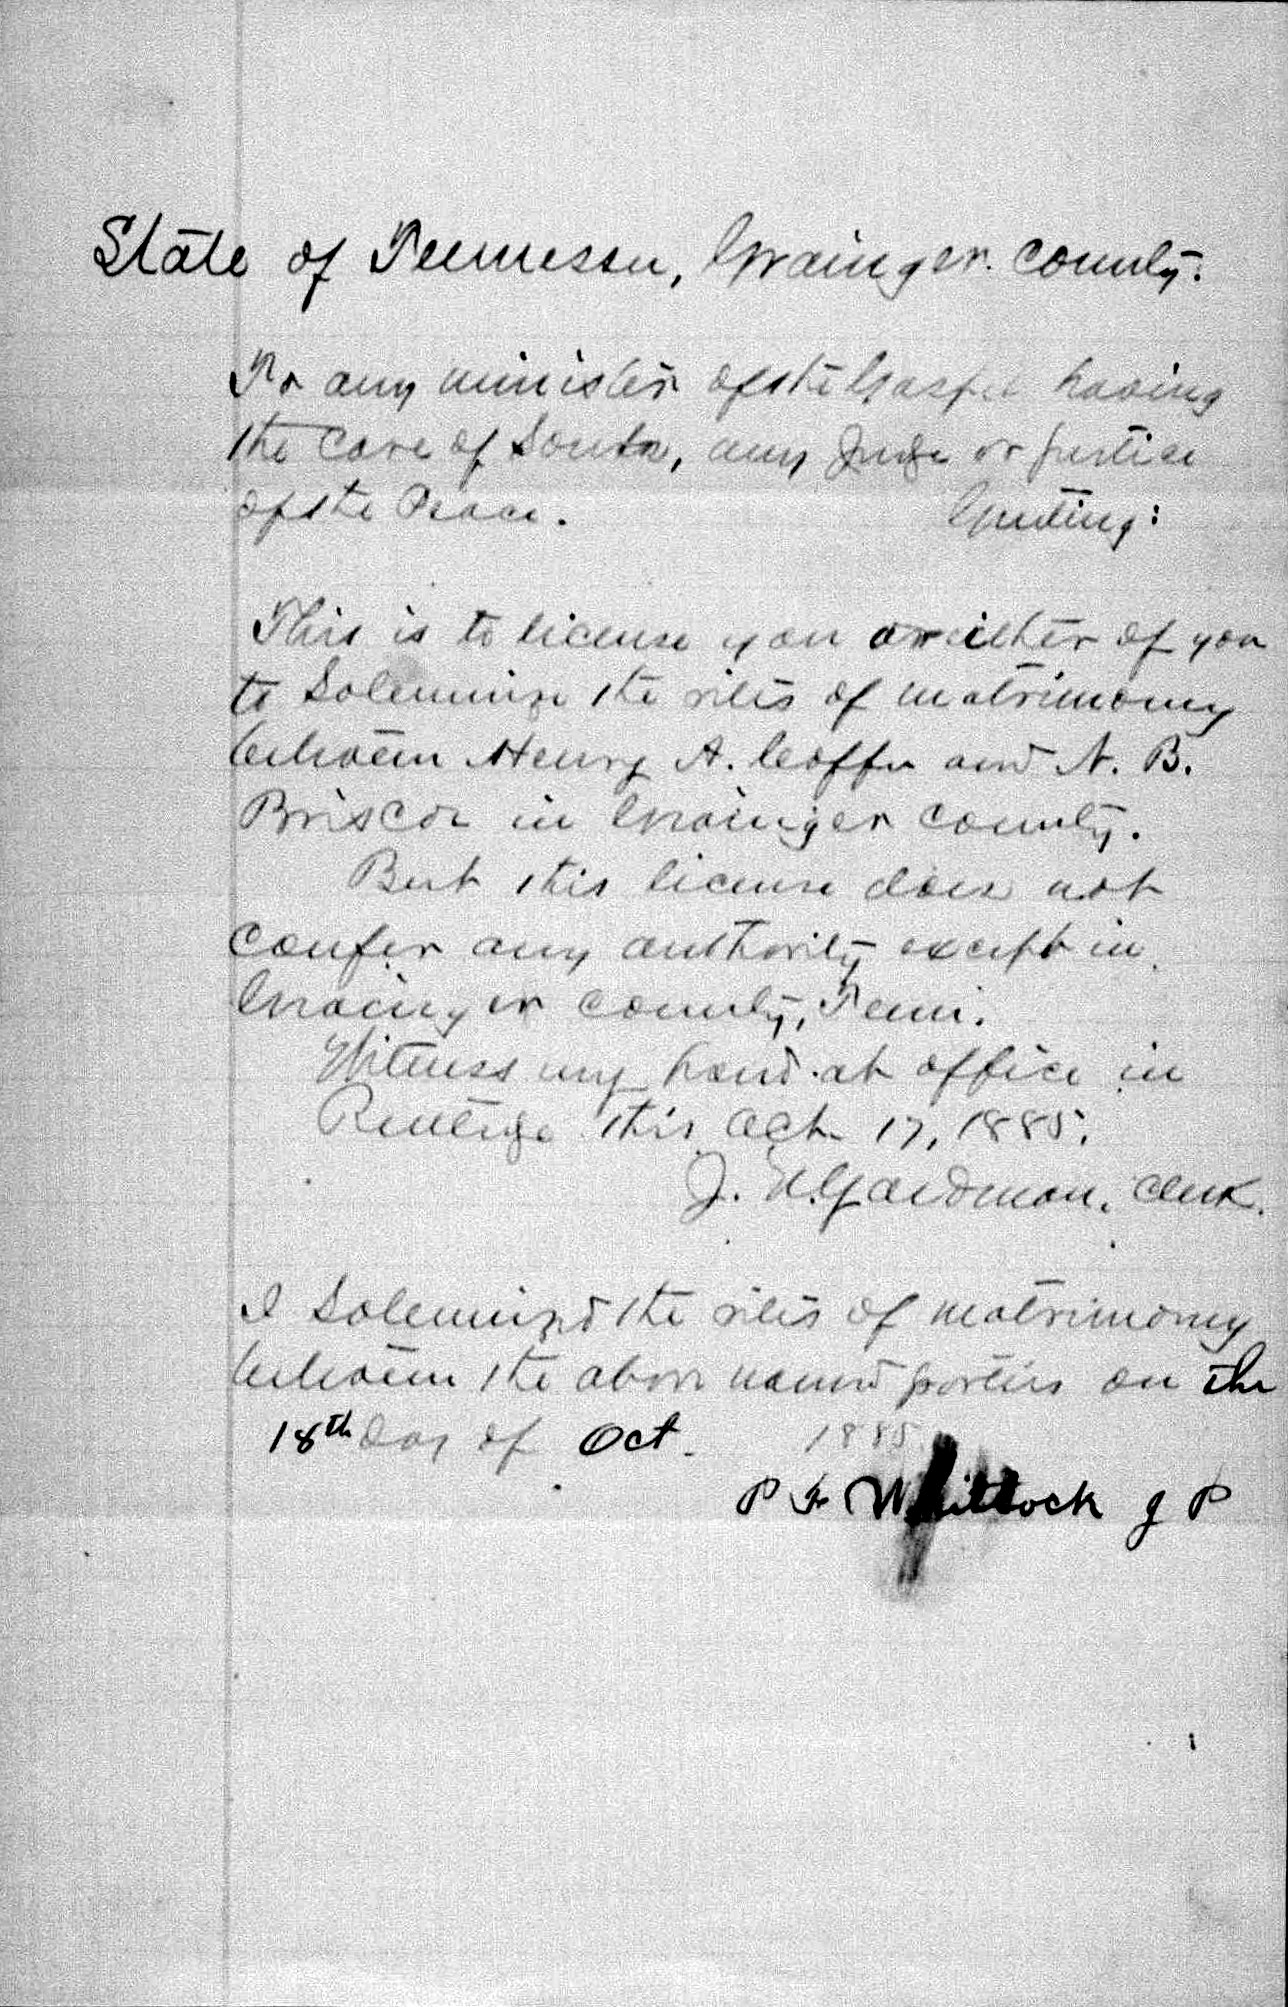 State of Tennessee, Grainger County.
To any minister of the Gospel having
the care of Souls, any Judge or Justice
of the Peace. Greeting:
This is to license you or either of you
to Solemnize the rites of matrimony
between Henry A. Coffee and N. B.
Briscoe in Grainger County.
But this license does not
confer any authority except in
Grainger County, Tenn.
Witness my hand at office in
Rutledge this Oct. 17, 1885.
J. Goodman, Clerk.
I Solemnized the rites of matrimony
between the above named parties on the
18th day of Oct. 1885
P F Whitlock J P